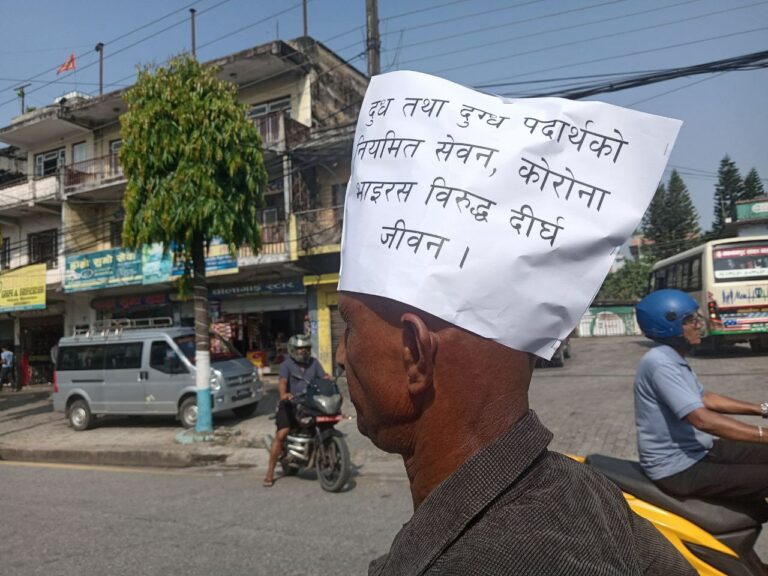 दुध तथा दुग्ध पदार्थको
नियमित सेवन, कोरोना
भाइरस विरुद्ध दीर्घ
जीवन ।